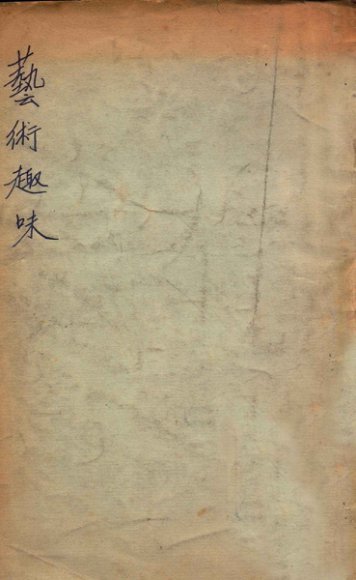 藝術趣味